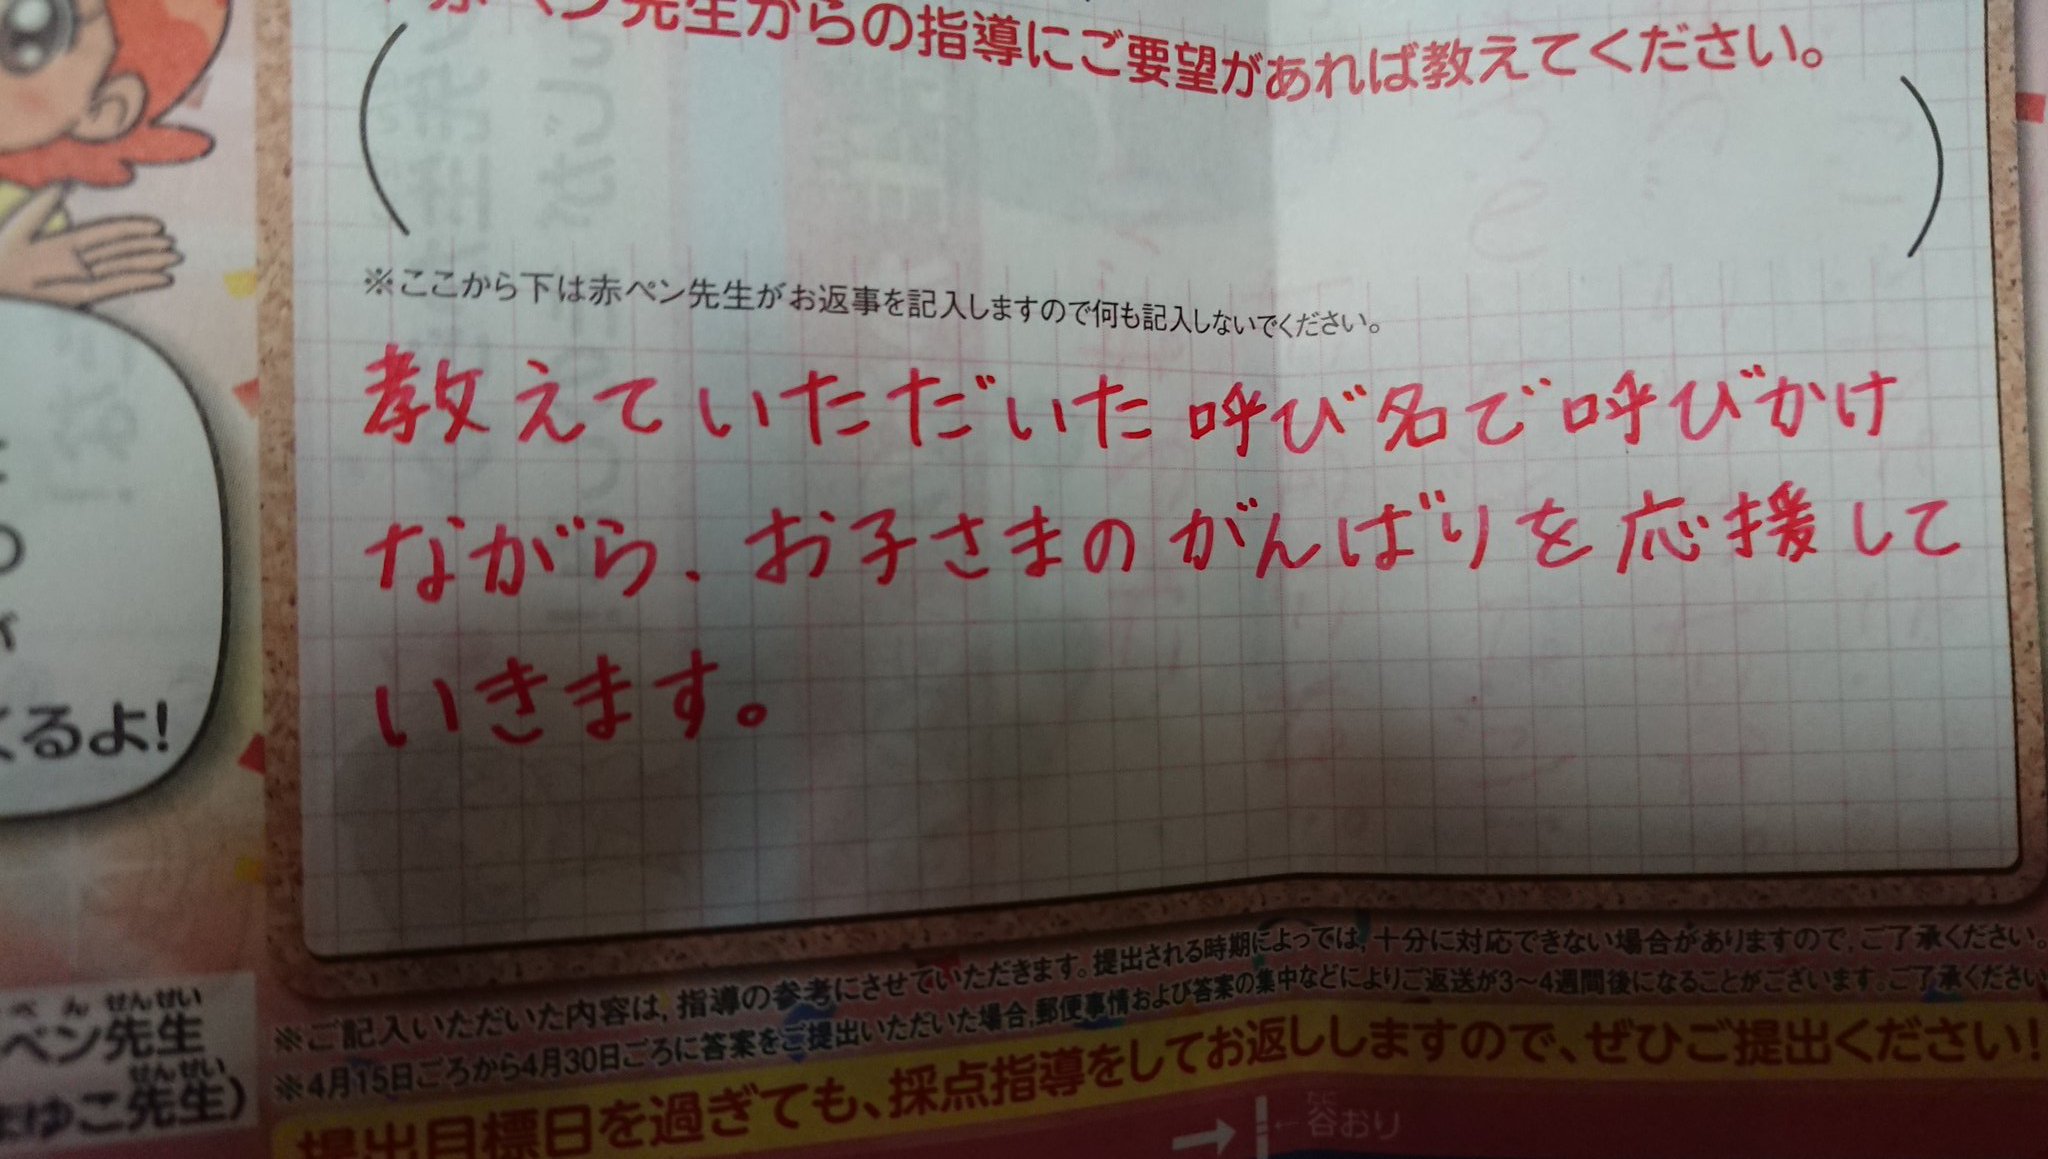 赤ペン先生からの指導にご要望があれば教えてください。
※ここから下は赤ペン先生がお返事を記入しますので何も記入しないでください。
教えていただいた呼び名で呼びかけ
ながら、お子さまのがんばりを応援して
いきます。
くるよ!
※ご記入いただいた内容は、指導の参考にさせていただきます。提出される時期によっては、十分に対応できない場合がありますので、ご了承ください。
※4月15日ごろから4月30日ごろに答案をご提出いただいた場合、郵便事情および答案の集中などによりご返送が3〜4週間後になることがございます。ご了承ください
提出目標日を過ぎても、採点指導をしてお返ししますので、ぜひご提出ください!
ペン先生
ゆこ先生)
谷おり